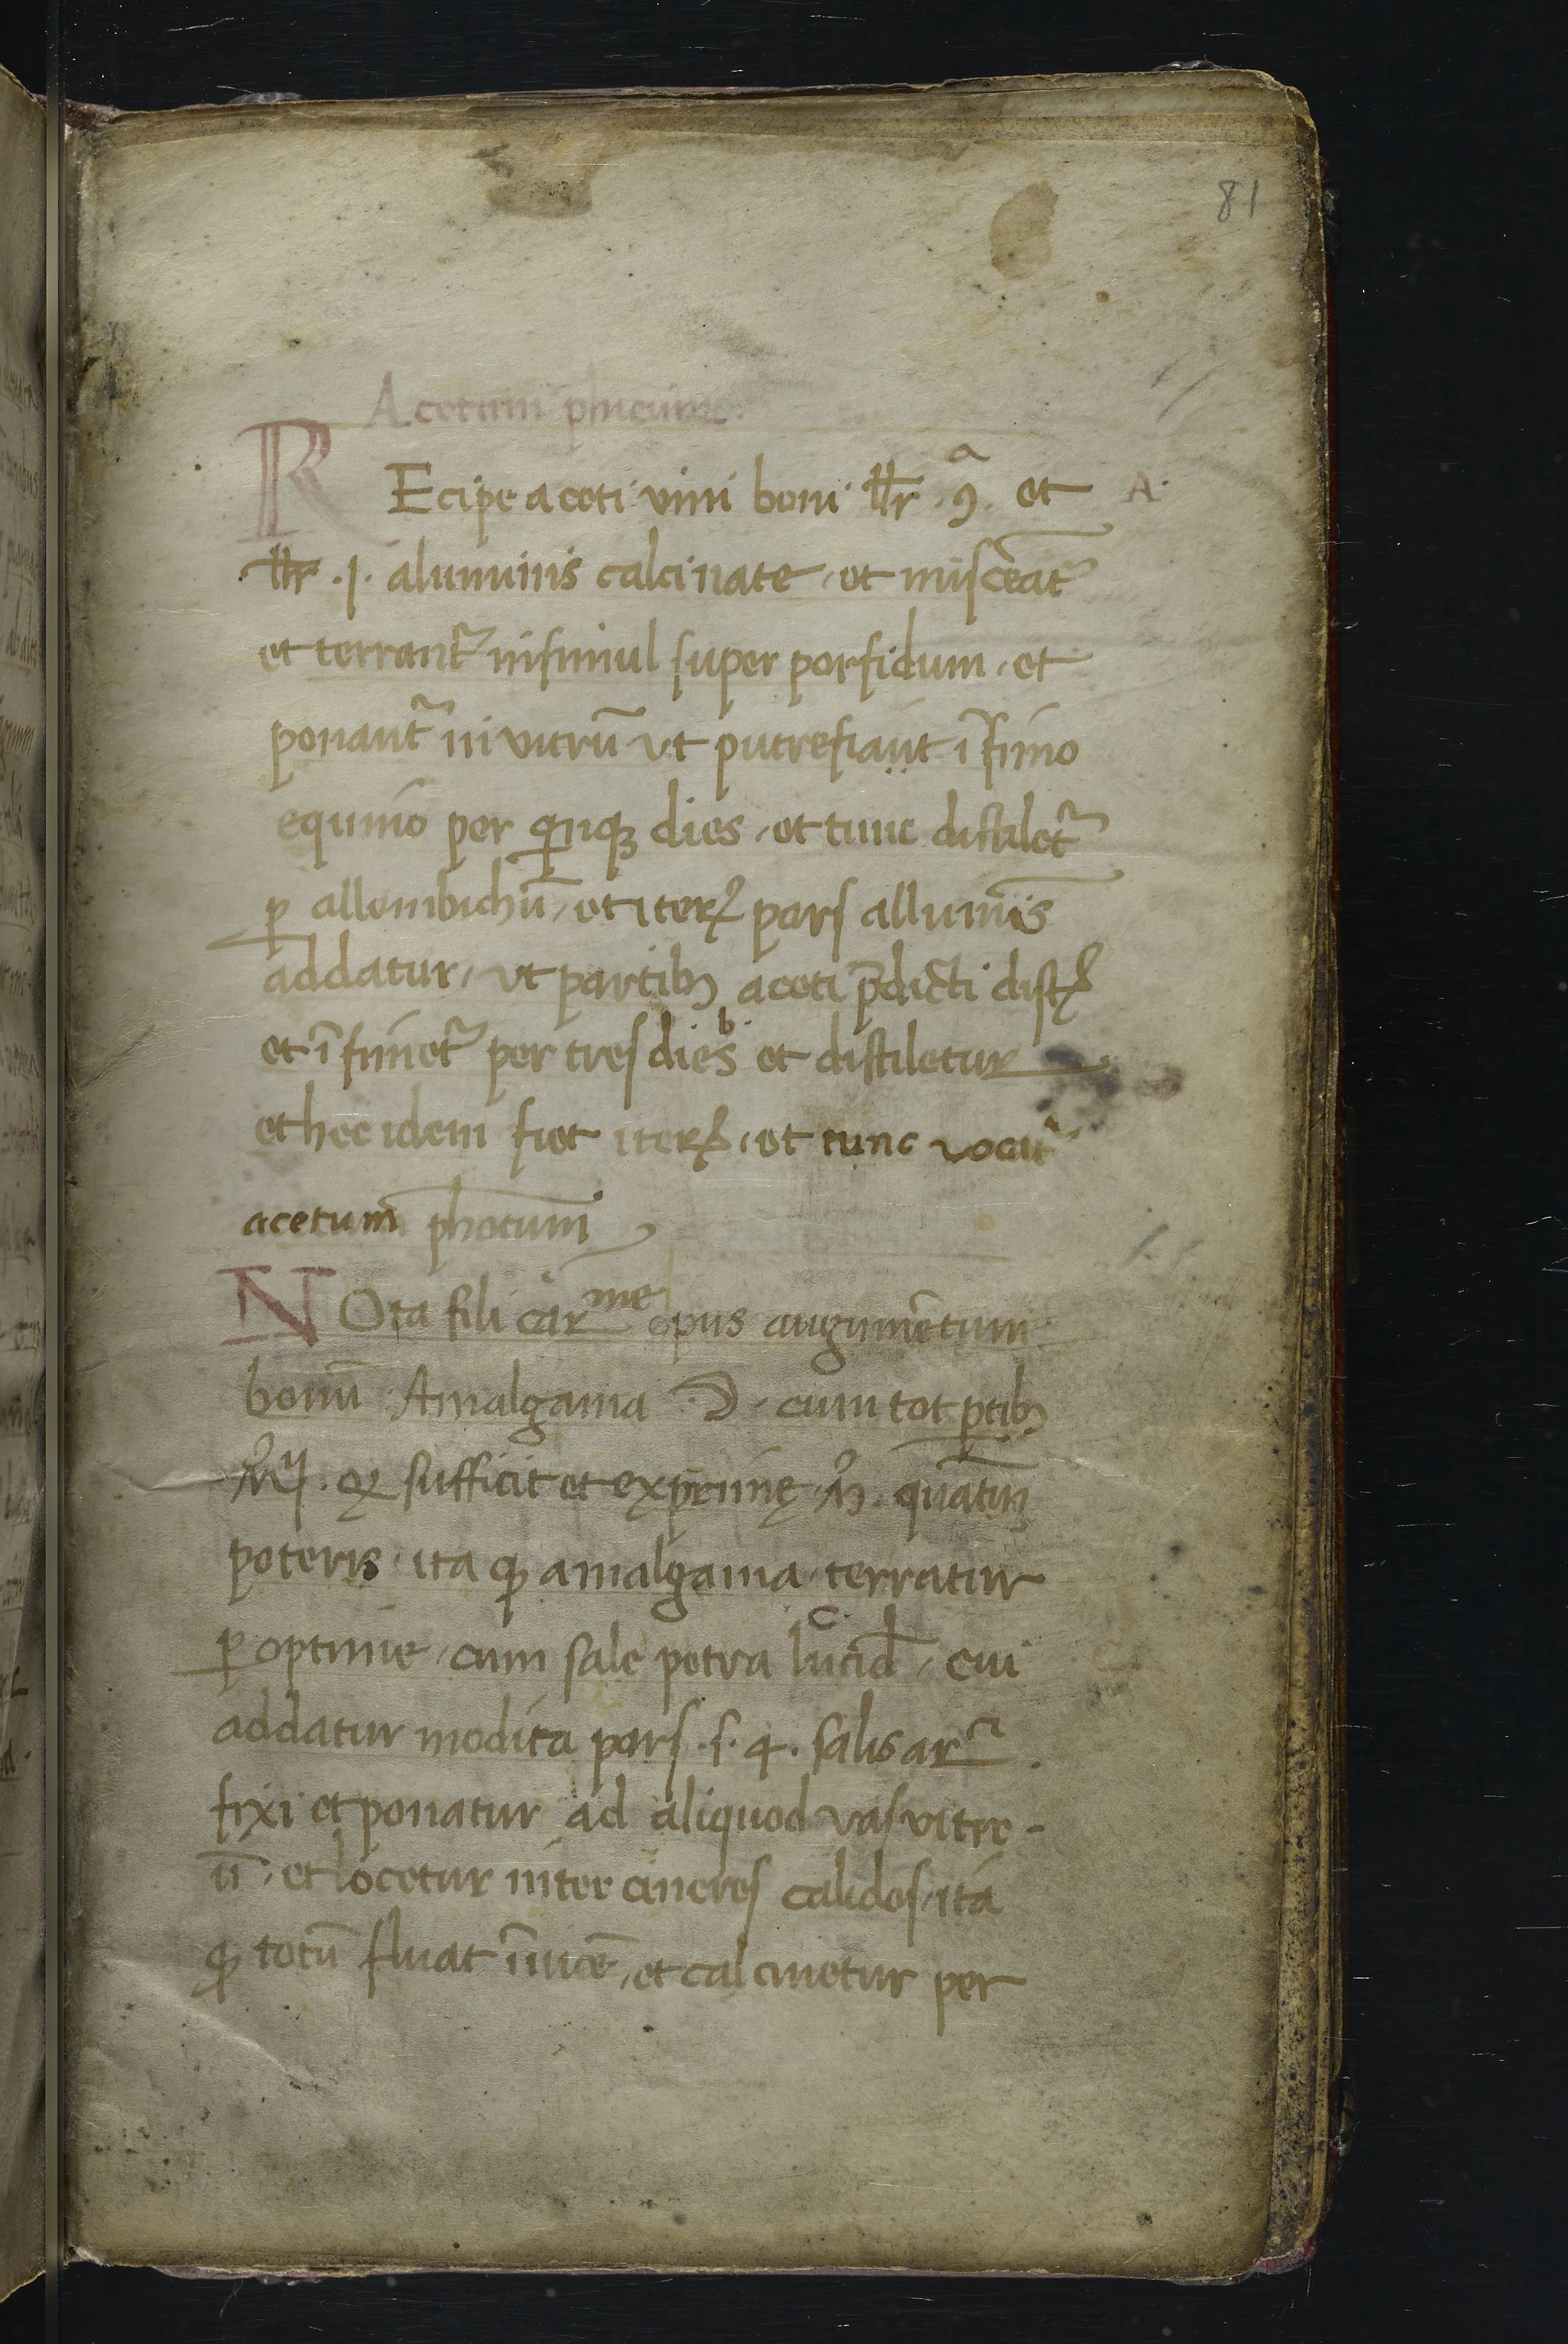 81
Acetum phicum
REcipe aceti vini boni llr . 9 . et
A
llr . j . aluminis calcinate , et misceat᷑
et terrant᷑ insimul super porfidum , et
ponant᷑ in vitrū vt putrefiant ī fimo
equino per qinqꝫ dies , et tunc distilet᷑
ꝑ allembichū , et iterꝝ pars alluminis
addatur , vt partibꝫ aceti p̄dicti dist
et ī fimet᷑ per tres dies et distiletur
b
et hec idem fiet iterꝝ , et tunc vocat᷑
acetum phōcum
NOta fili carme opus augumētum
bonū Amalgama ☽ . cum tot ꝑtibꝫ
sufficit et exprime quatin
poteris , ita qꝫ amalgama , terratur
ꝑ optime , cum sale petra lucid , cui
c
addatur modica pars . s . 4 . salis ar
fixi et ponatur ad aliquod vas vitre -
ū , et locetur inter cineres calidos , ita
qꝫ totū fluat īuicē , et calcinetur per